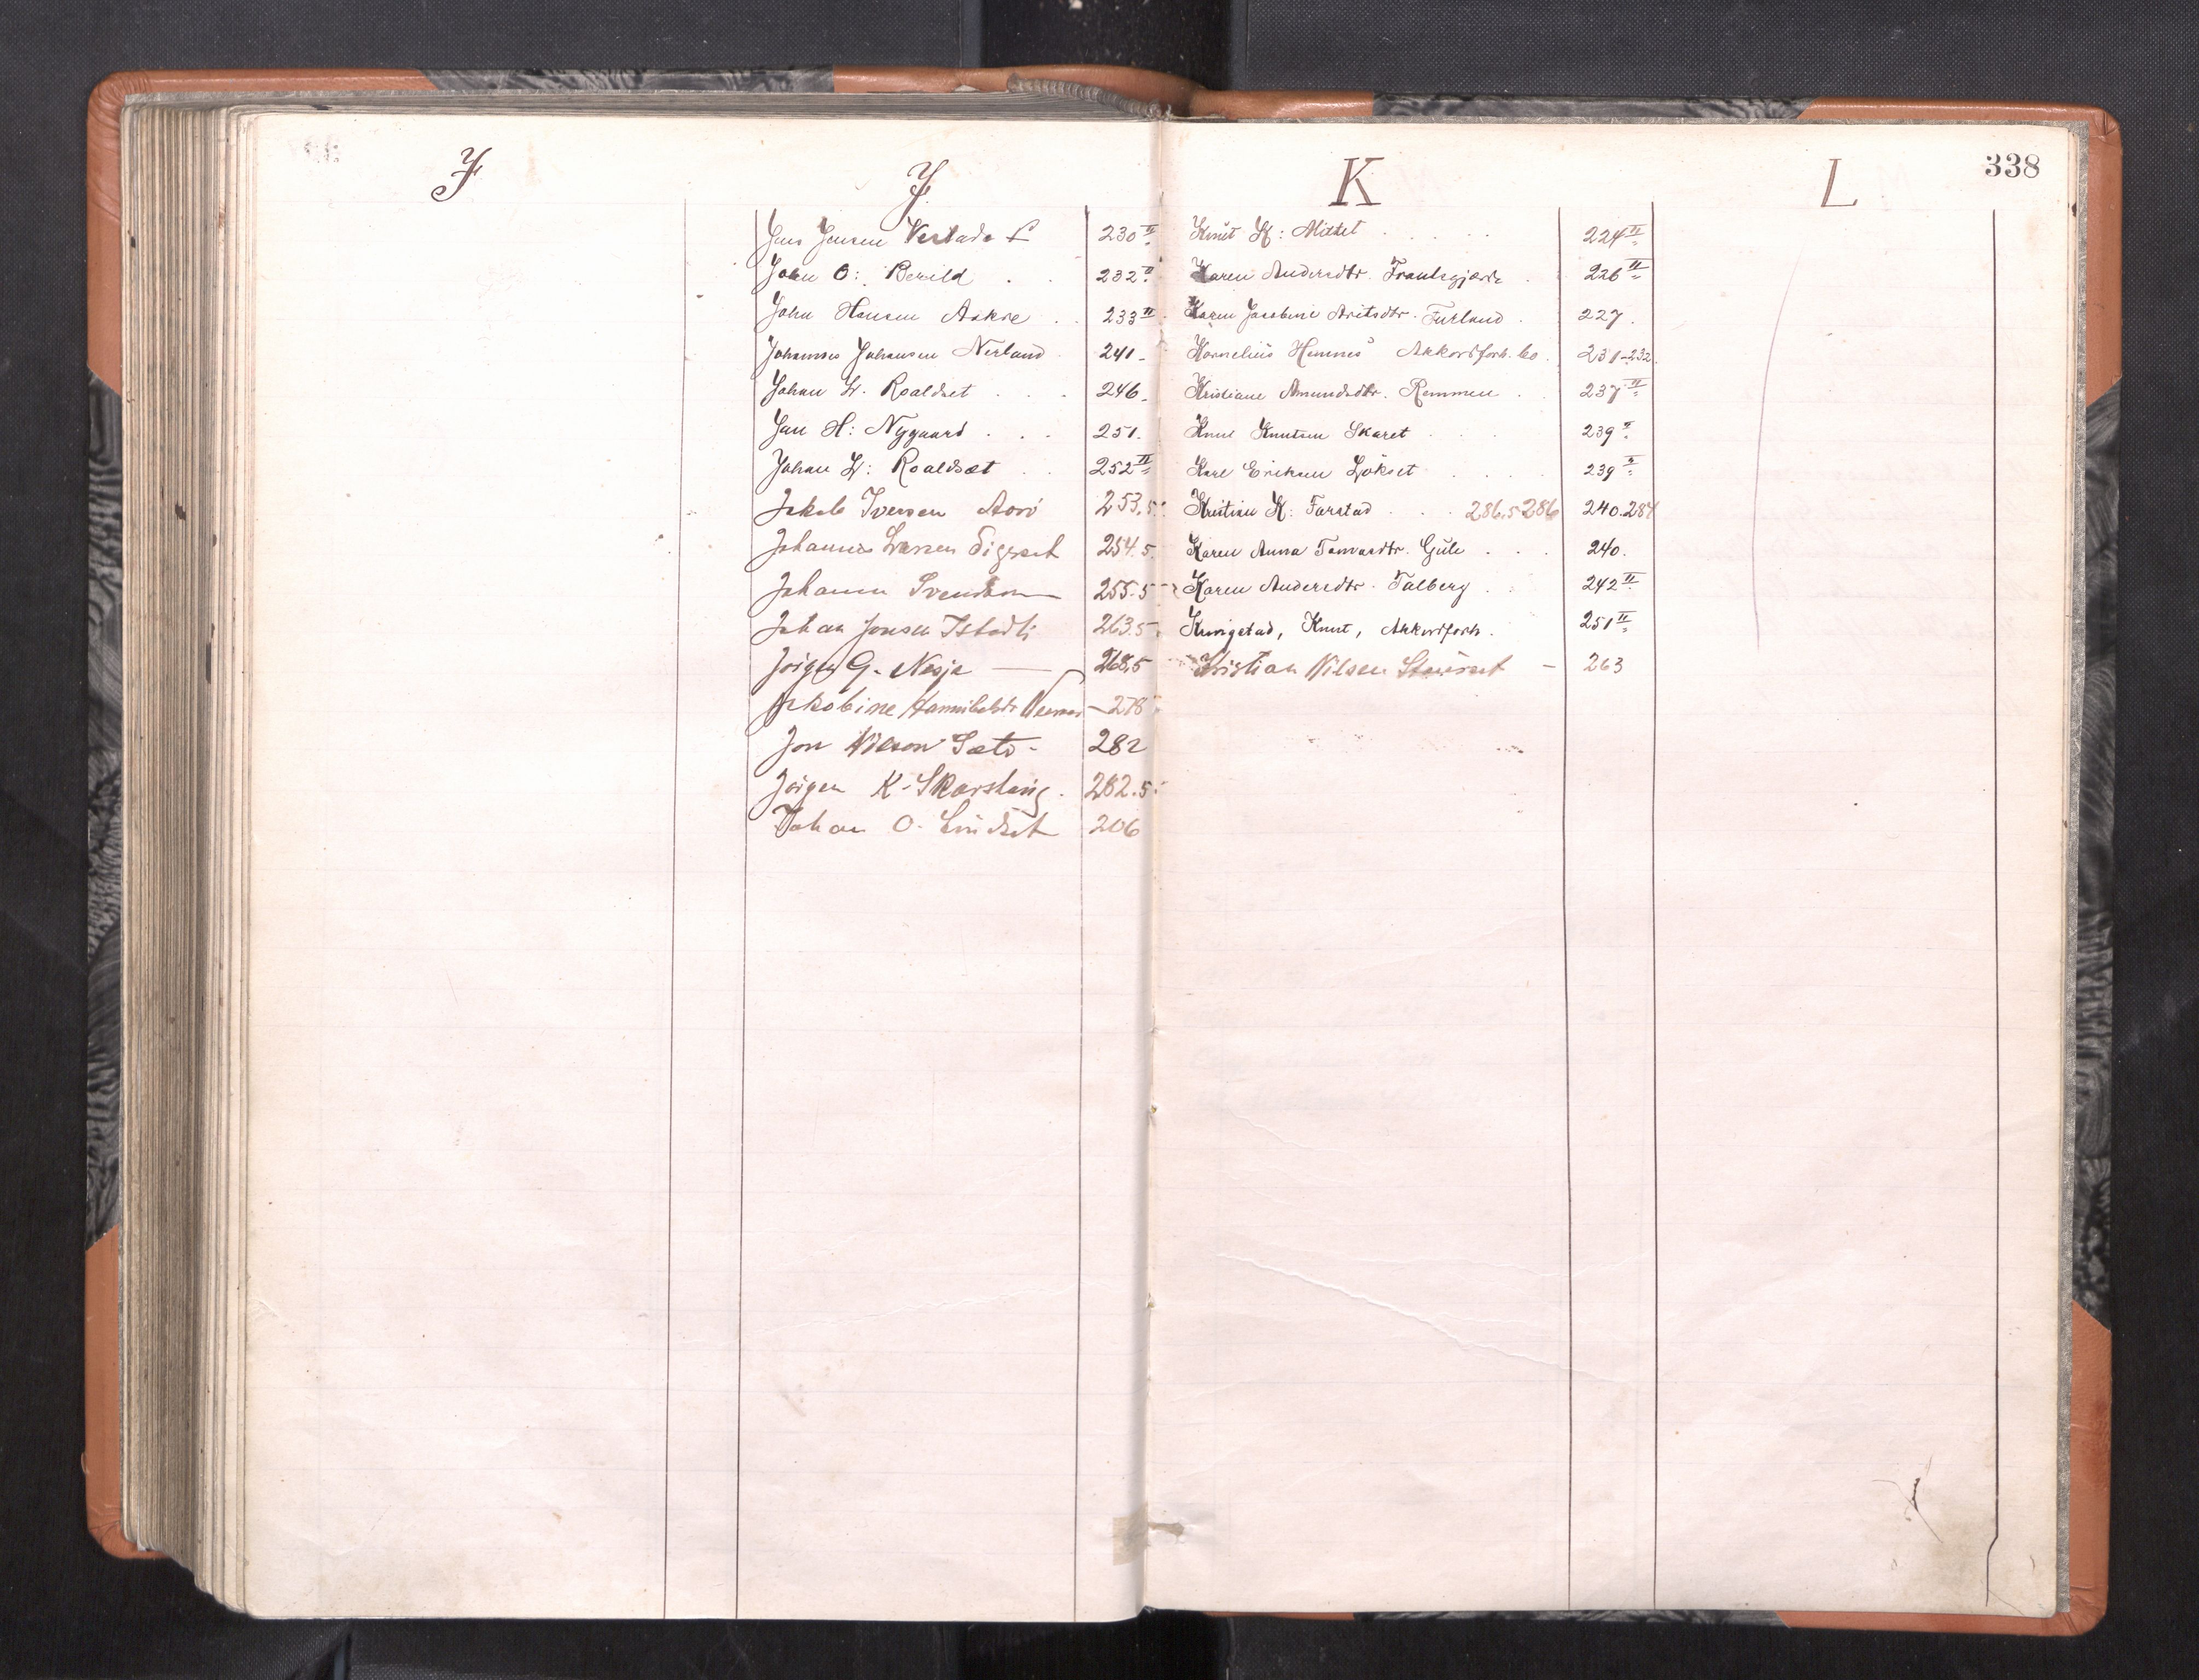 338
I
J.
Jens Jensen Vestad
230 II
John O: Berild . .
232 II
John Hansen Askre . .
233 II
Johannes Johansen Nerland
241.
Johan L. Roaldset . . .
246.
Jan H: Nygaard . . .
251.
Johan L: Roaldset . .
252 II
Jakob Iversen
253.5.
Johannes Larsen Sigerset
254.5.
Johann Svendsen
255.5
Johan Jonsen Istadli
263.5.
Jörgen G. Nesja —
268.5
Jakobine Hannibalsdtr
278
Jon Nilson Sætr -
282
Jörgen K. Skorsteng.
282.5.
Johan O. Lindset
206
K
Knut L: Mittet . . . .
224 II
Karen Andersdtr. Frantsgjærde .
226 II
Karen Jacobine Aritsdtr. Furland .
227.
Kornelius Hemnes Akkordforh. bo.
231-232.
Kristiane Amundsdtr. Remmem .
237 II
Knut Knutsen Skaret . . .
239 II
Karl Eriksen Lökset . . .
239 II
Kristian K: Farstad . . . 286.5 286
240.284
Karen Anna Tomasdtr. Gule . . .
240.
Karen Andersdtr. Talberg . .
242 II
Kringstad, Knut, Akkordforh.
251 II
Kristian Nilsen —
263
L